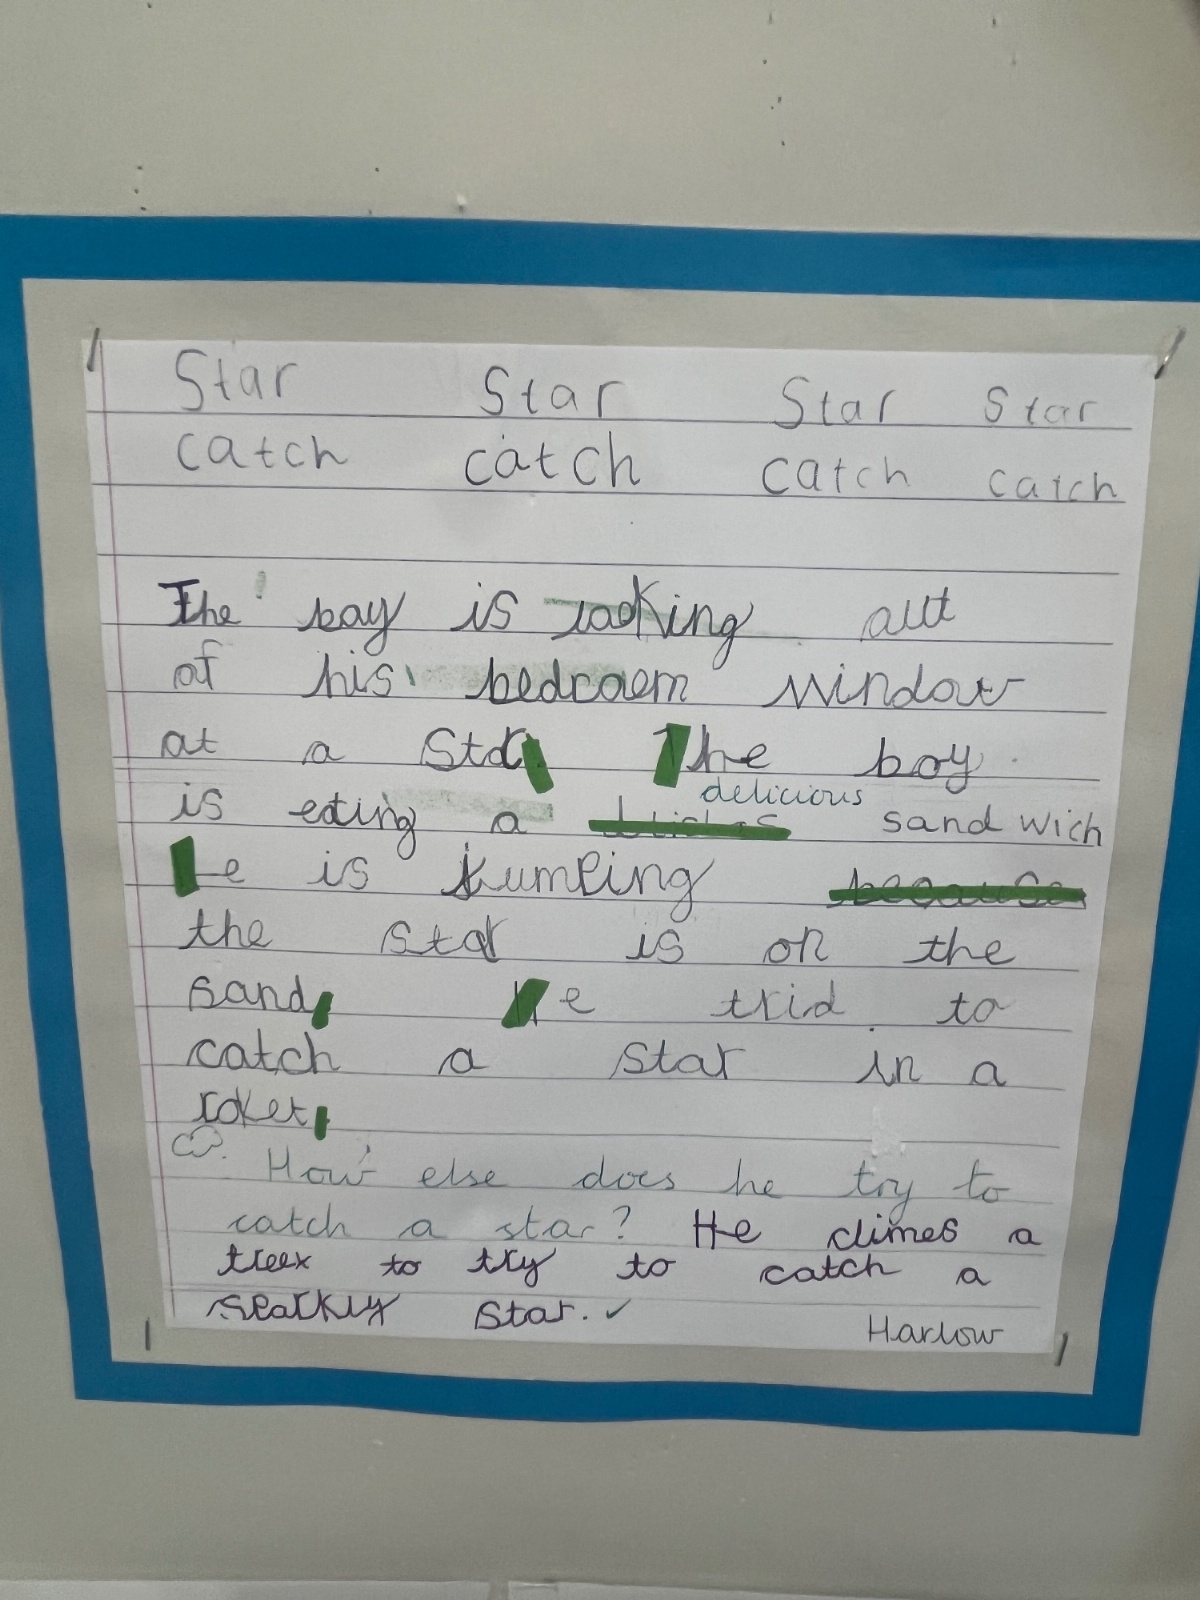 Star Star Star Star
catch catch catch catch
The boy is looking out
of his bedroem window
at a star The boy
is eating a delicious sandwich
He is jumping because
the star is on the
sand. He trid to
catch a star in a
roket.
How else does he try to
catch a star? He climes a
treex to try to catch a
sparkly star. ✓
Harlow